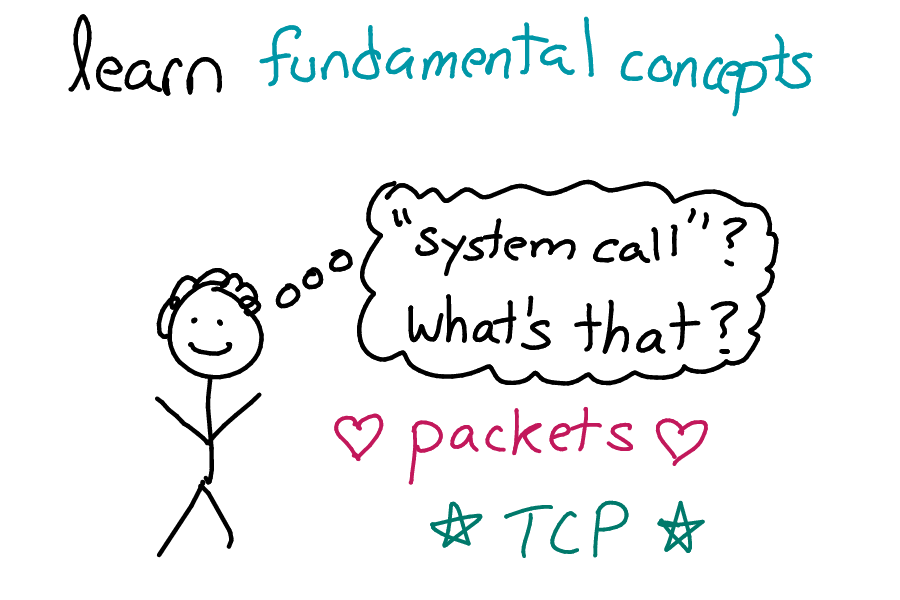 learn fundamental concepts
"system call"?
What's that?
♡ packets ♡
☆ TCP ☆